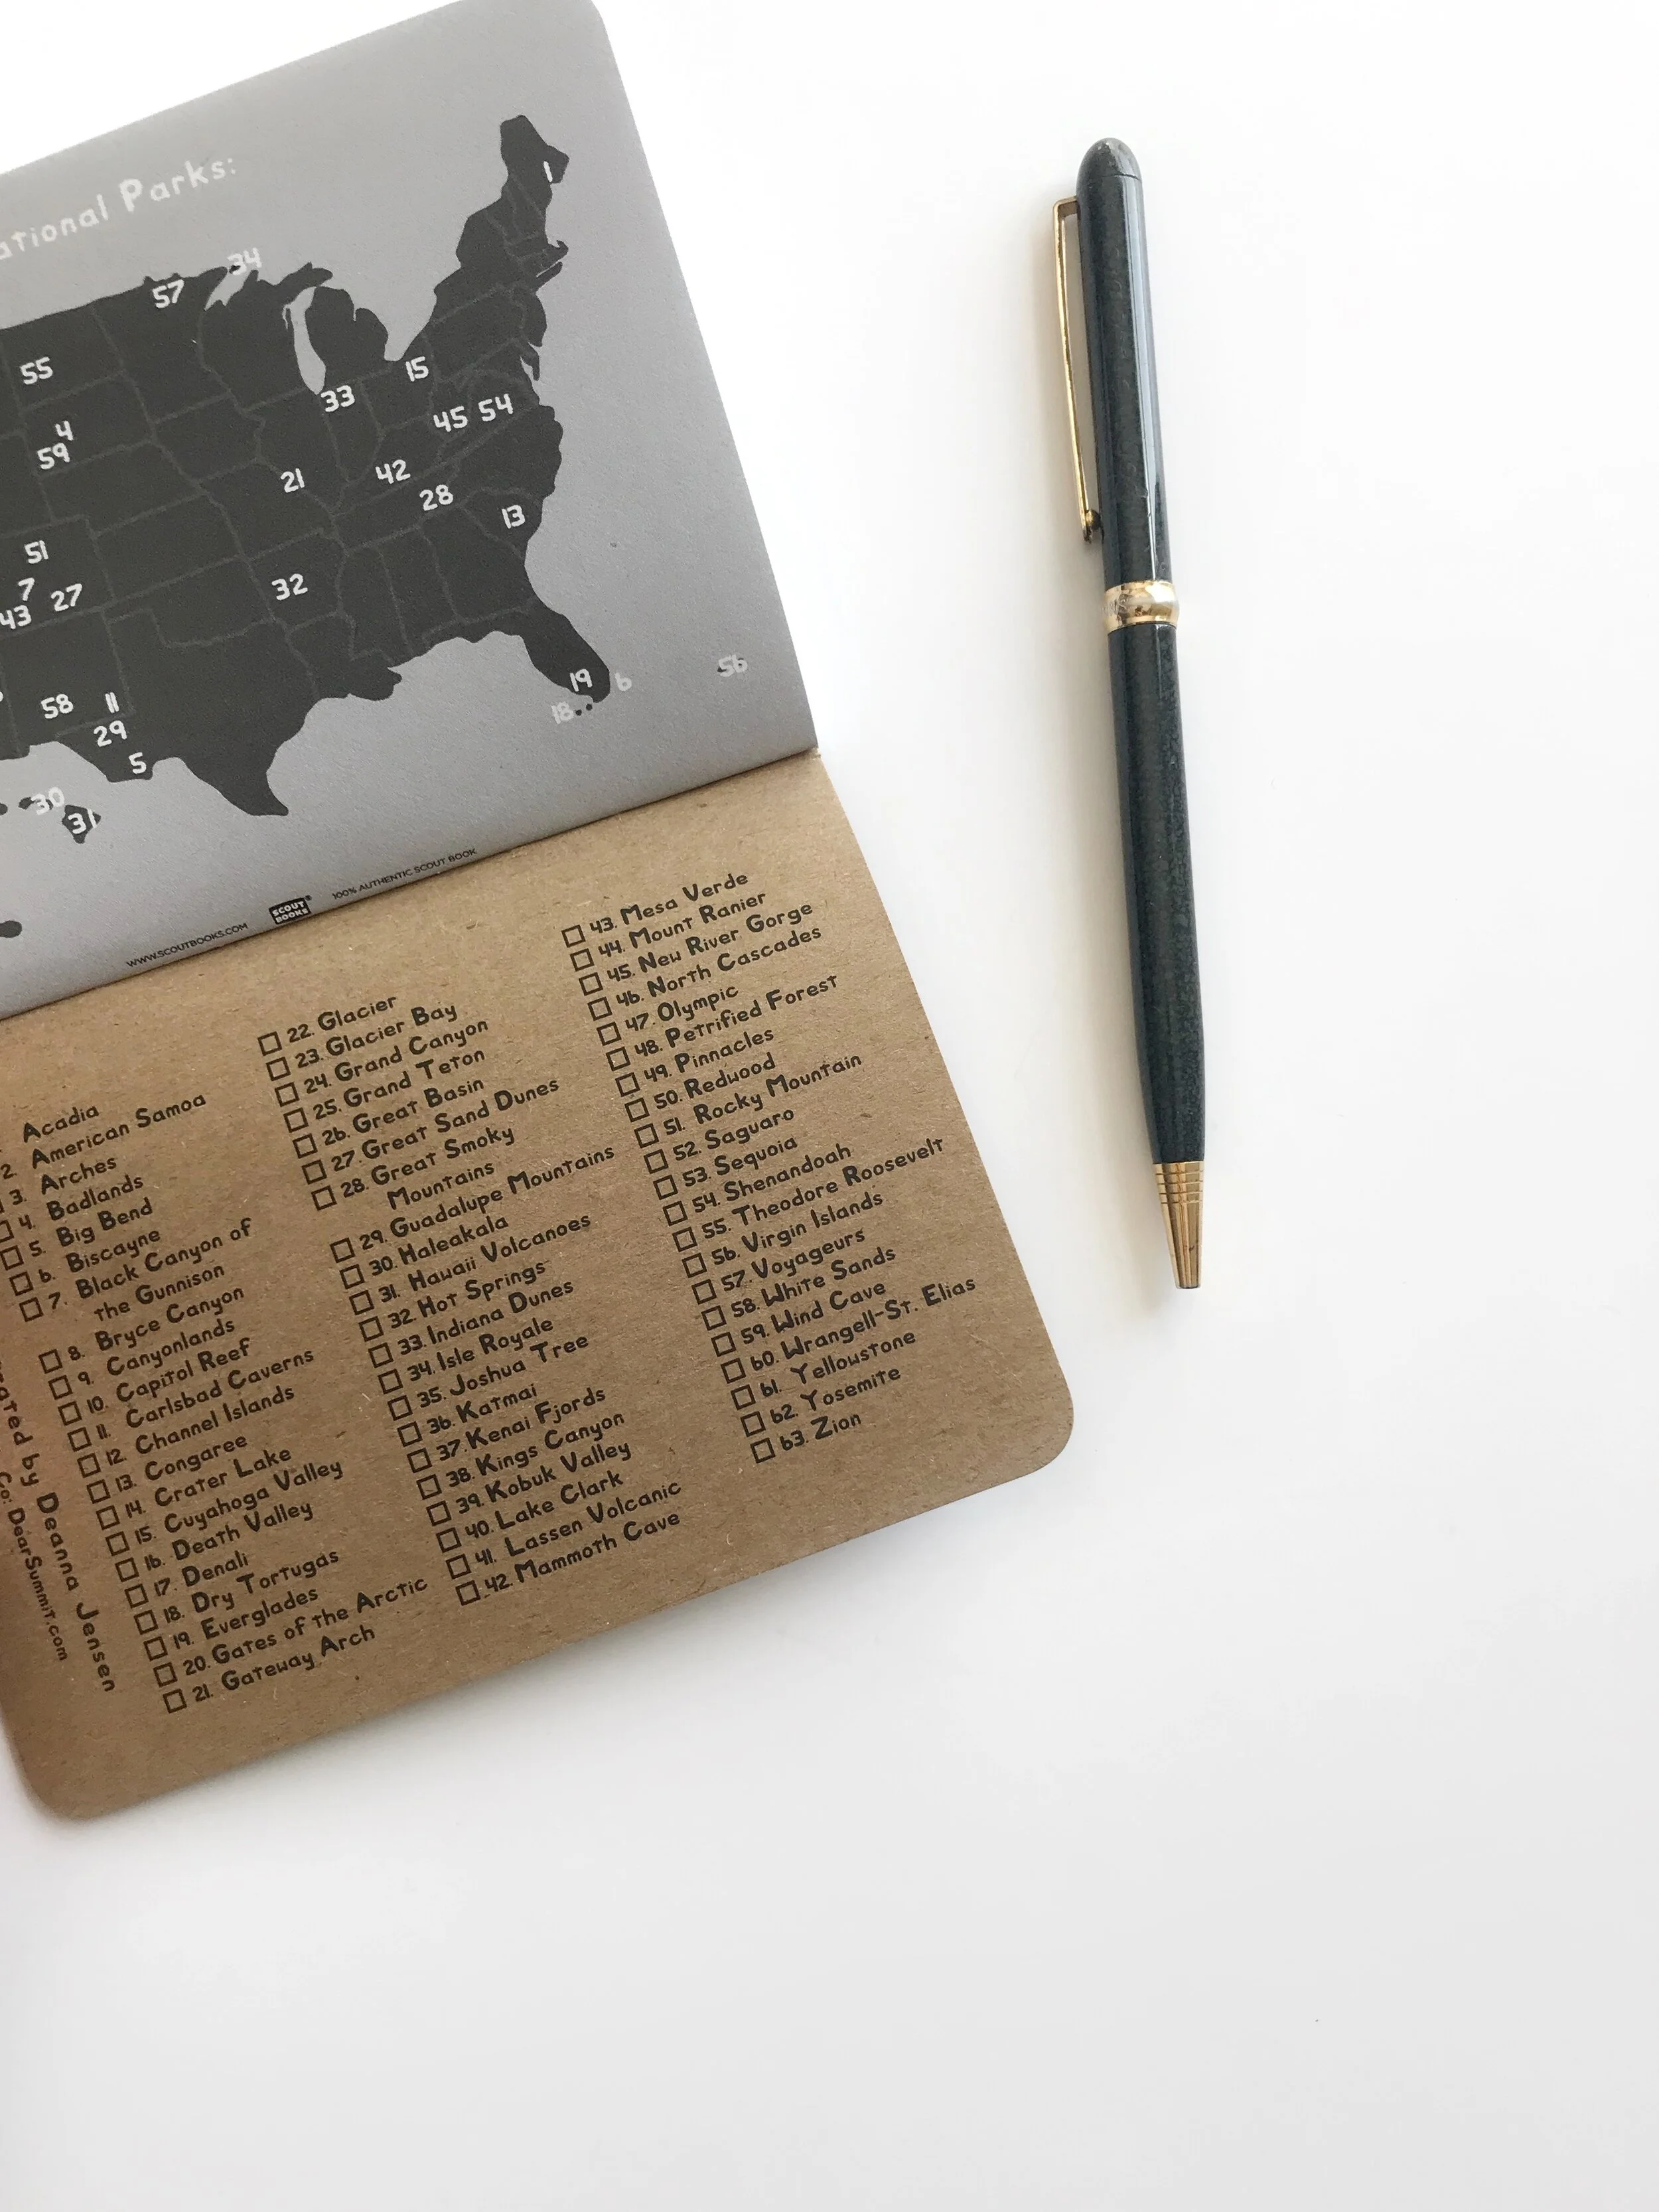 ational Parks:
1
34
57
55
15
33
4
45 54
59
42
21
28
13
51
32
7
27
43
56
19
6
18
58
11
29
5
30
31
WWW.SCOUTBOOKS.COM
SCOUT
BOOKS®
100% AUTHENTIC SCOUT BOOK
Acadia
2. American Samoa
3. Arches
4. Badlands
5. Big Bend
6. Biscayne
7. Black Canyon of
the Gunnison
8. Bryce Canyon
9. Canyonlands
10. Capitol Reef
11. Carlsbad Caverns
12. Channel Islands
13. Congaree
14. Crater Lake
15. Cuyahoga Valley
16. Death Valley
17. Denali
18. Dry Tortugas
19. Everglades
20. Gates of the Arctic
21. Gateway Arch
22. Glacier
23. Glacier Bay
24. Grand Canyon
25. Grand Teton
26. Great Basin
27. Great Sand Dunes
28. Great Smoky
Mountains
29. Guadalupe Mountains
30. Haleakala
31. Hawaii Volcanoes
32. Hot Springs
33. Indiana Dunes
34. Isle Royale
35. Joshua Tree
36. Katmai
37. Kenai Fjords
38. Kings Canyon
39. Kobuk Valley
40. Lake Clark
41. Lassen Volcanic
42. Mammoth Cave
43. Mesa Verde
44. Mount Ranier
45. New River Gorge
46. North Cascades
47. Olympic
48. Petrified Forest
49. Pinnacles
50. Redwood
51. Rocky Mountain
52. Saguaro
53. Sequoia
54. Shenandoah
55. Theodore Roosevelt
56. Virgin Islands
57. Voyageurs
58. White Sands
59. Wind Cave
60. Wrangell-St. Elias
61. Yellowstone
62. Yosemite
63. Zion
ated by Deanna Jensen
Co: DearSummit.com